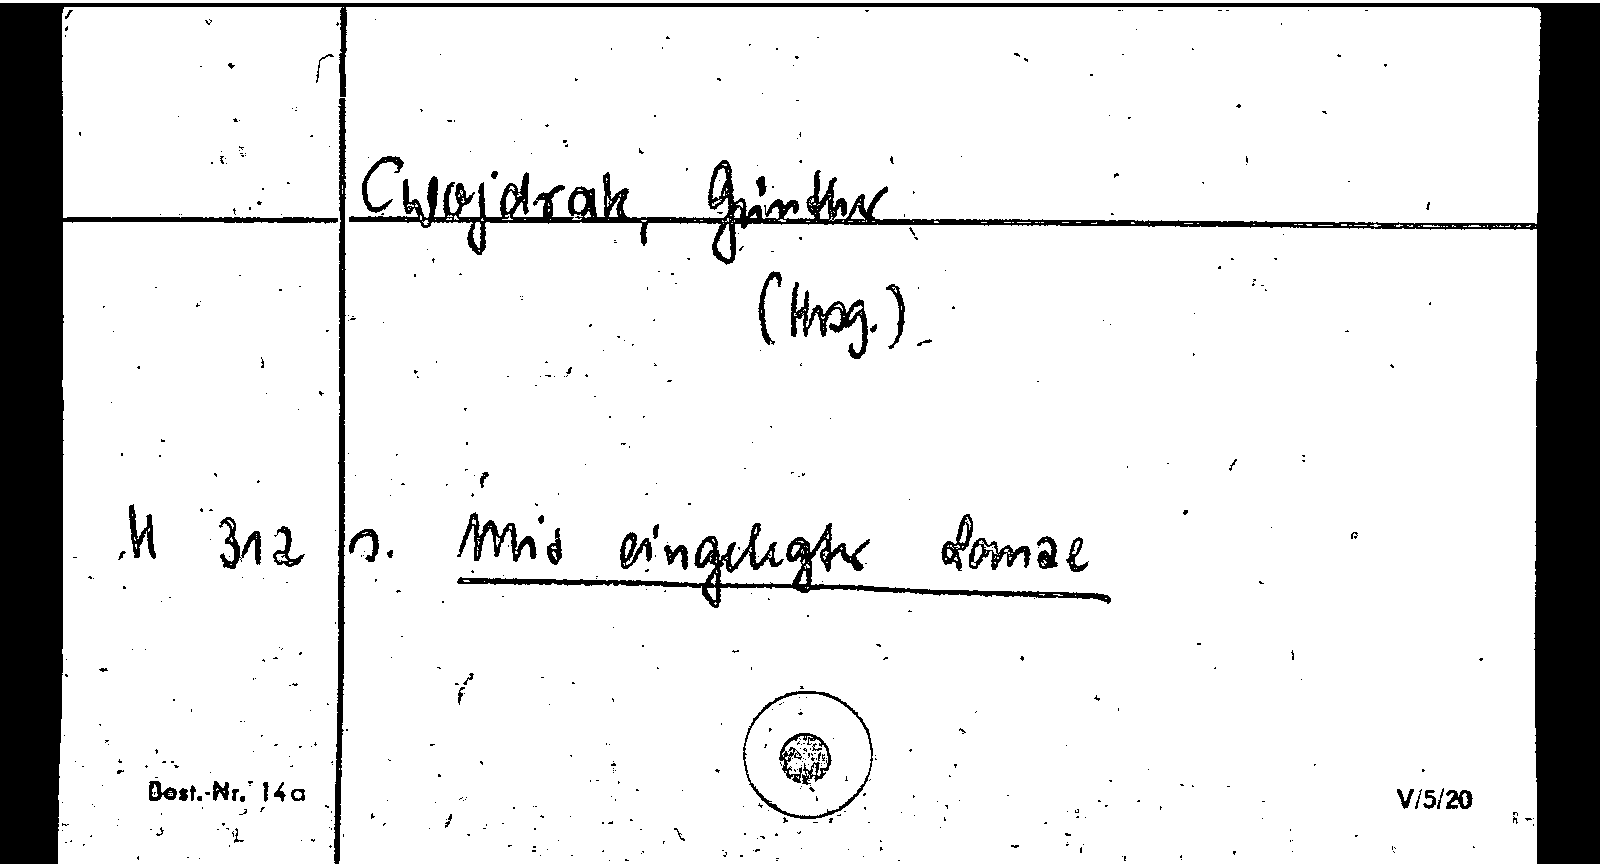 Cwojdrak, Günther
(Hrsg.)
H 312 s. Mit eingelegter Lanze
Best.-Nr. 14a
V/5/20